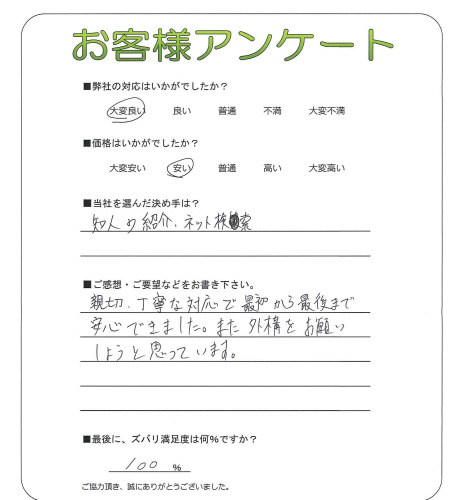 お客様アンケート
■弊社の対応はいかがでしたか？
大変良い 良い 普通 不満 大変不満
■価格はいかがでしたか？
大変安い 安い 普通 高い 大変高い
■当社を選んだ決め手は？
知人の紹介、ネット検索
■ご感想・ご要望などをお書き下さい。
親切、丁寧な対応で最初から最後まで
安心できました。また外構をお願い
しようと思っています。
■最後に、ズバリ満足度は何％ですか？
100 %
ご協力頂き、誠にありがとうございました。